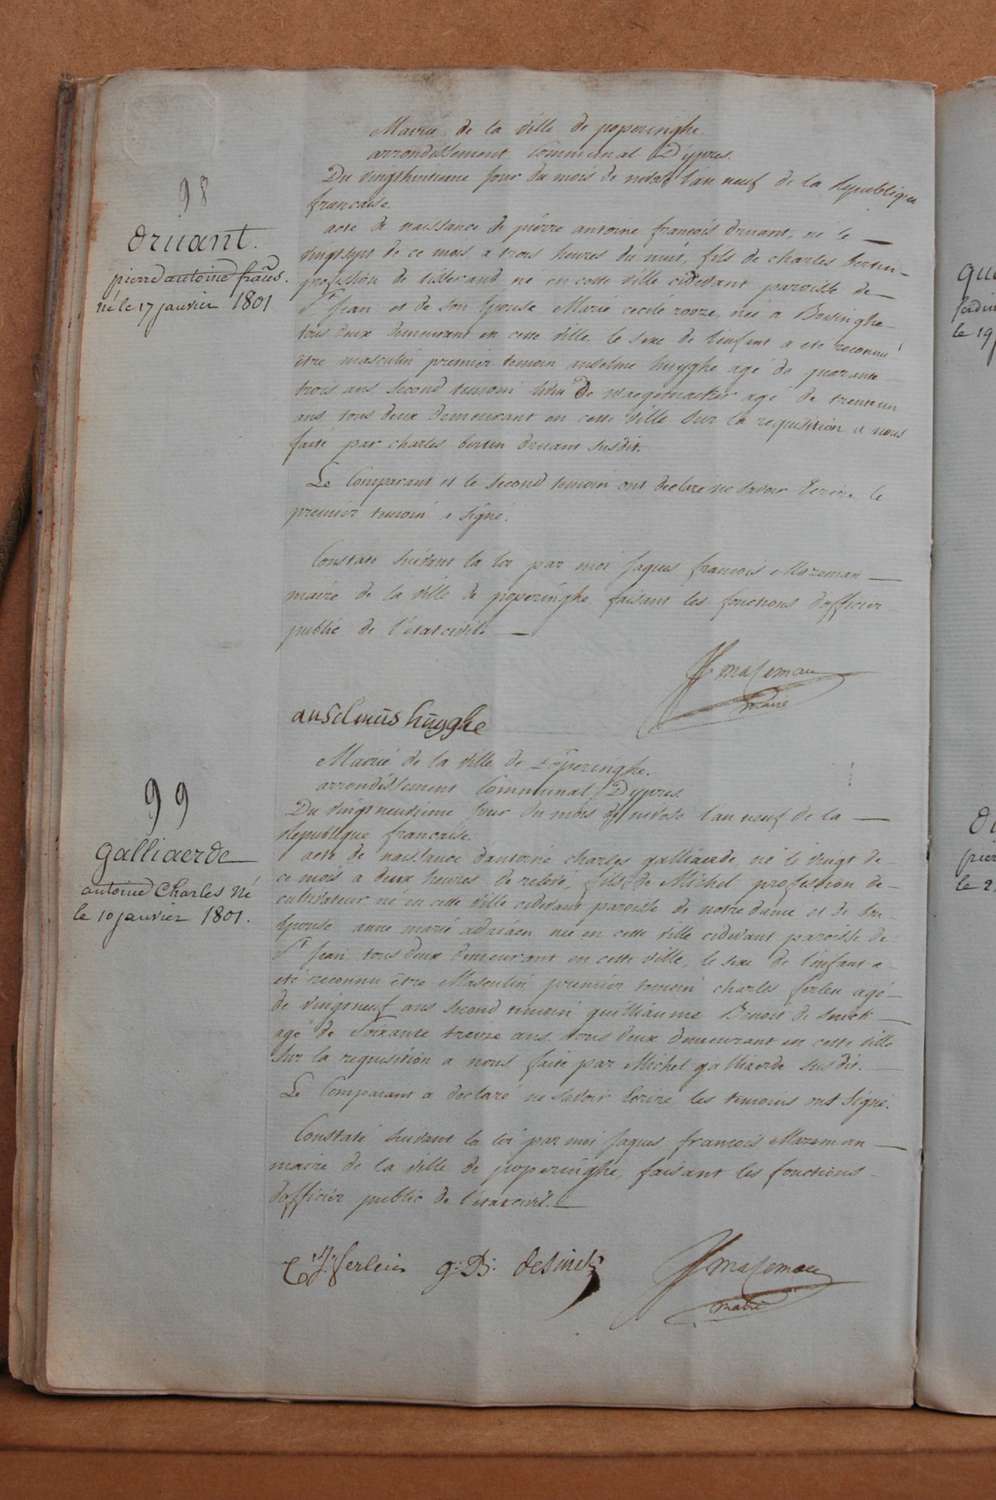 98
druant.
pierre antoine fraños.
né le 17 janvier 1801
Mairie de la ville de poperinghe
arrondissement Communal D'ypres.
Du vingthuitieme jour du mois de nivose l'an neuf de la Republique
francaise.
acte de naissance de pierre antoine francois druant, né le —
vingtsept de ce mois a trois heures du nuit, fils de charles bertin —
profession de tisserand né en cette ville cidevant paroisse de —
St Jean et de son Epouse Marie cecile née a Boesinghe —
tous deux demeurant en cette ville le sexe de l'enfant a eté reconnu
être masculin premier temoin anselme huyghe agé de quarante
trois ans second temoin de agé de trenteun
ans tous deux demeurant en cette ville sur la requisition a nous
faite par charles bertin druant susdit.
Le Comparant et le second temoin ont declaré ne savoir Ecrire le
premier temoin a signé.
Constaté suivant la loi par moi Jaques francois Mazeman —
maire de la ville de poperinghe faisant les fonctions d'officier
public de l'etat civil. —
JF mazeman
maire
anselmüs hüyghe
99
galliaerde
antoine Charles Né
le 10 janvier 1801.
Mairie de la ville de Poperinghe.
arrondissement Communal D'ypres
Du vingtneuvieme jour du mois de nivose l'an neuf de la —
Republique francaise.
acte de naissance d'antoine charles galliaerde, né le vingt de —
ce mois a deux heures de relevé, fils de Michel profession de —
cultivateur né en cette ville cidevant paroisse de notre dame et de son
Epouse anne marie adriaen née en cette ville cidevant paroisse de
St Jean, tous deux demeurant en cette ville, le sexe de l'enfant a
eté reconnu être Masculin premier temoin charles ferlein agé —
de vingtneuf ans second temoin guilliaume Benoit de —
agé de soixante treize ans tous deux demeurant en cette ville
sur la requisition a nous faite par Michel galliaerde susdit. —
Le Comparant a declaré ne savoir Ecrire les temoins ont signé.
Constaté suivant la loi par moi Jaques francois Mazeman —
maire de la ville de poperinghe, faisant les fonctions
d'officier public de l'etat civil. —
C:J: ferlein g: B: desmet
JF mazeman
maire